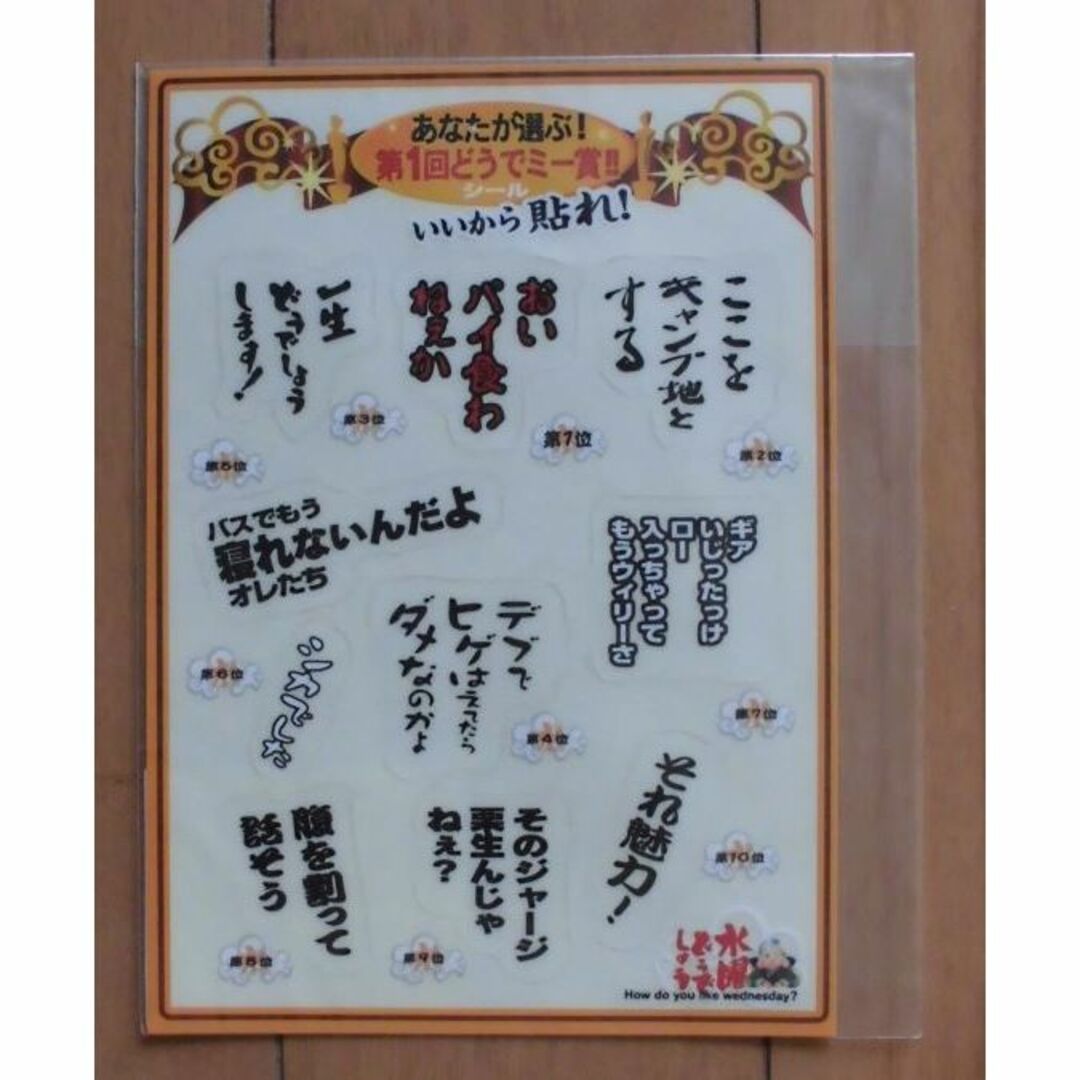 あなたが選ぶ!
第1回どうでミー賞!!
シール
いいから貼れ!
ここを
キャンプ地と
する
第2位
おい
パイ食わ
ねぇか
第1位
一生
どうでしょう
します!
第3位
第5位
バスでもう
寝れないんだよ
オレたち
第6位
ギア
いじったっけ
ロー
入っちゃって
もうウィリーさ
第7位
デブで
ヒゲはえてたら
ダメなのかよ
第4位
それ魅力!
第10位
そのジャージ
栗生んじゃ
ねぇ?
第9位
腹を割って
話そう
第8位
水曜
どうで
しょう
How do you like wednesday?